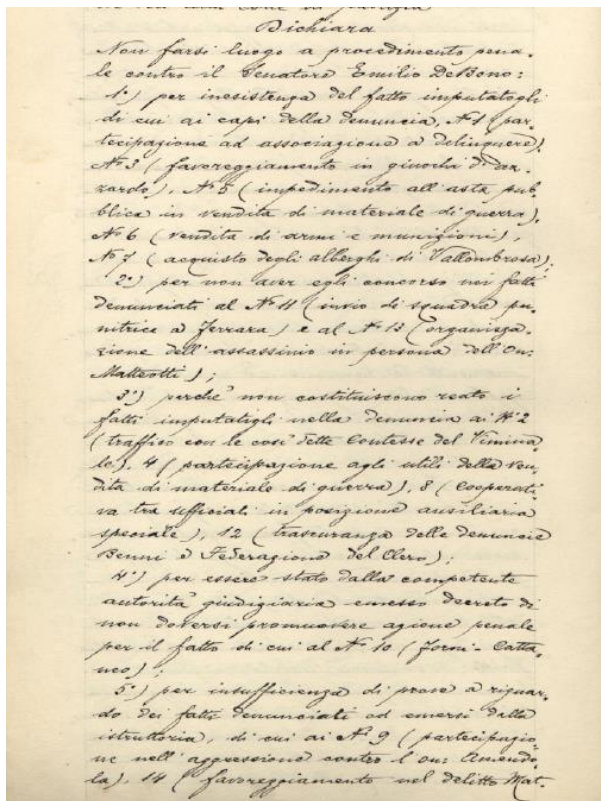 Dichiara
Non farsi luogo a procedimento pena-
le contro il Senatore Emilio De Bono:
1°) per inesistenza del fatto imputatogli
di cui ai capi della denuncia, N° 1 (par-
tecipazione ad associazione a delinquere),
N° 3 (favoreggiamento in giuochi d'az-
zardo), N° 5 (impedimento all'asta pub-
blica in vendita di materiale di guerra),
N° 6 (vendita di armi e munizioni),
N° 7 (acquisto degli alberghi di Vallombrosa);
2°) per non aver egli concorso nei fatti
denunciati al N° 11 (invio di squadra pu-
nitrice a Ferrara) e al N° 13 (organizza-
zione dell'assassinio in persona dell'On:
Matteotti);
3°) perché non costituiscono reato i
fatti imputatigli nella denuncia ai N° 2
(traffico con le così dette Contesse del Vimina-
le), 4 (partecipazione agli utili della ven-
dita di materiale di guerra), 8 (Cooperati-
va tra ufficiali in posizione ausiliaria
speciale), 12 (trascuranza delle denuncie
Benni e Federazione del Clero);
4°) per essere stato dalla competente
autorità giudiziaria emesso decreto di
non doversi promuovere azione penale
per il fatto di cui al N° 10 (Forni-Catta-
neo);
5°) per insufficienza di prove a riguar-
do dei fatti denunciati od emersi dalla
istruttoria, di cui ai N° 9 (partecipazio-
ne nell'aggressione contro l'on: Amendo-
la), 14 (favoreggiamento nel delitto Mat-